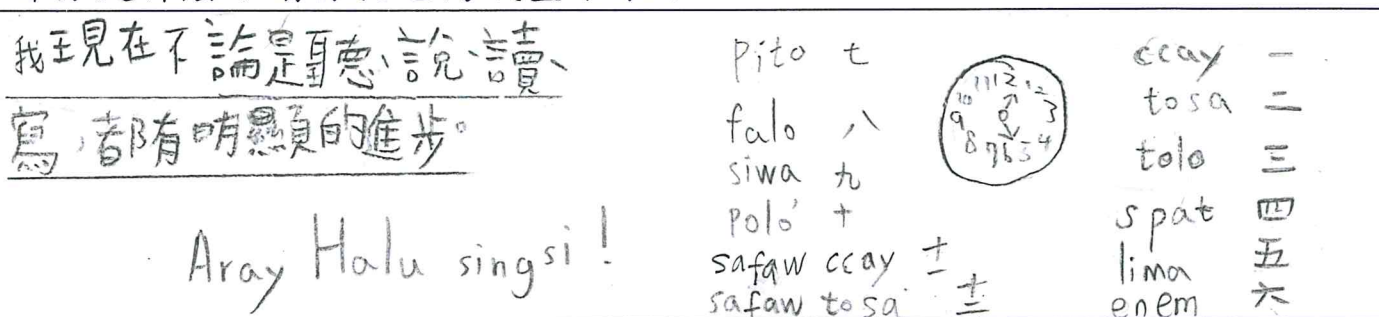 我現在不論是聽、說、讀、
寫，都有明顯的進步。
Aray Halu singsi!
pito 七
falo 八
siwa 九
polo' 十
safaw ccay 十一
safaw tosa 十二
12
1
2
3
4
5
6
7
8
9
10
11
ccay 一
tosa 二
tolo 三
spat 四
lima 五
enem 六